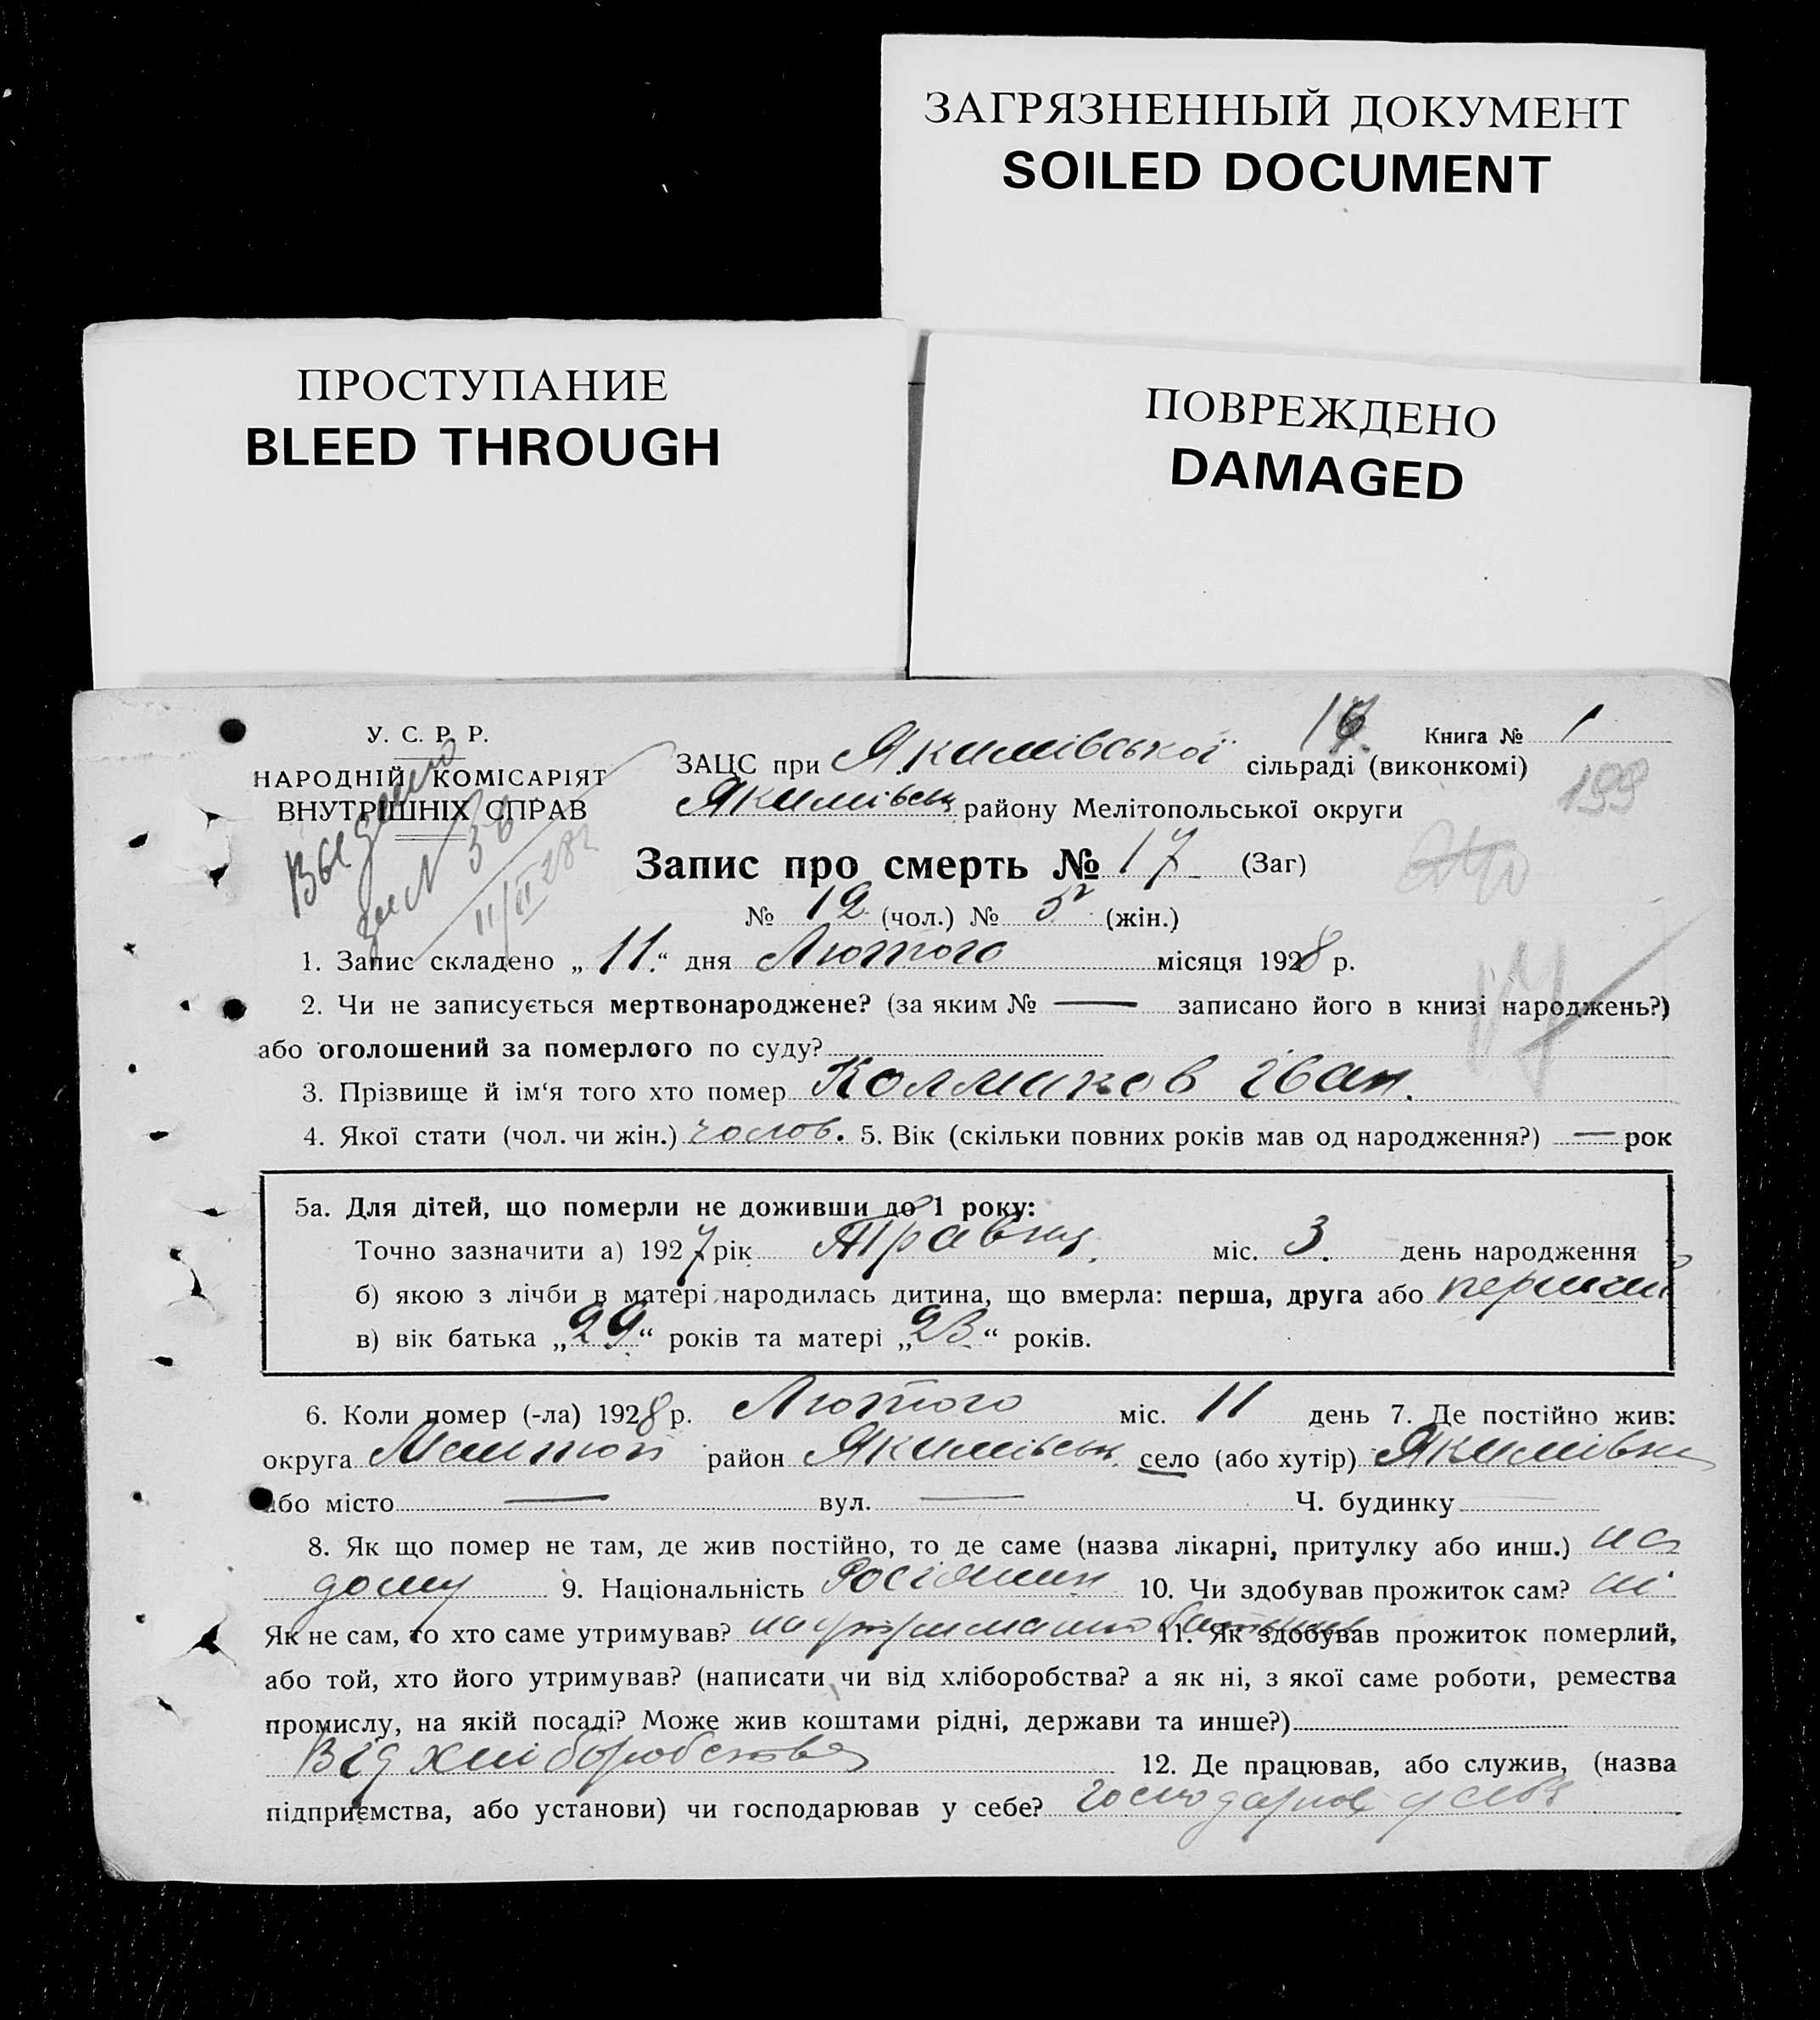 ЗАГРЯЗНЕННЫЙ ДОКУМЕНТ
SOILED DOCUMENT
ПРОСТУПАНИЕ
BLEED THROUGH
ПОВРЕЖДЕНО
DAMAGED
У. С. Р. Р.
НАРОДНІЙ КОМІСАРІЯТ
ВНУТРІШНІХ СПРАВ
Книга № 1
ЗАЦС при Якимівської сільраді (виконкомі)
199
Якимівськ району Мелітопольської округи
Запис про смерть № 17 (Заг)
№ 12 (чол.) № 5 (жін.)
11/II 28
1. Запис складено „11.“ дня Лютого місяця 1928 р.
17
2. Чи не записується мертвонароджене? (за яким № — записано його в книзі народжень?)
або оголошений за померлого по суду?
3. Прізвище й ім‘я того хто помер Колмаков Іван.
4. Якої стати (чол. чи жін.) чолов. 5. Вік (скільки повних років мав од народження?) — рок
5а. Для дітей, що померли не доживши до 1 року:
Точно зазначити а) 1927 рік Травня. міс. 3. день народження
б) якою з лічби в матері народилась дитина, що вмерла: перша, друга або перший
в) вік батька „29“ років та матері „23“ років.
6. Коли помер (-ла) 1928 р. Лютого міс. 11 день 7. Де постійно жив:
округа Мелітоп район Якимівськ село (або хутір) Якимівка
або місто — вул. — Ч. будинку —
8. Як що помер не там, де жив постійно, то де саме (назва лікарні, притулку або инш.) на
дому 9. Національність Росіянин 10. Чи здобував прожиток сам? ні
Як не сам, то хто саме утримував? на утриманні батьків 11. Як здобував прожиток померлий,
або той, хто його утримував? (написати чи від хліборобства? а як ні, з якої саме роботи, ремества
промислу, на якій посаді? Може жив коштами рідні, держави та инше?)
Від хліборобства 12. Де працював, або служив, (назва
підприємства, або установи) чи господарював у себе? господарюв у себе